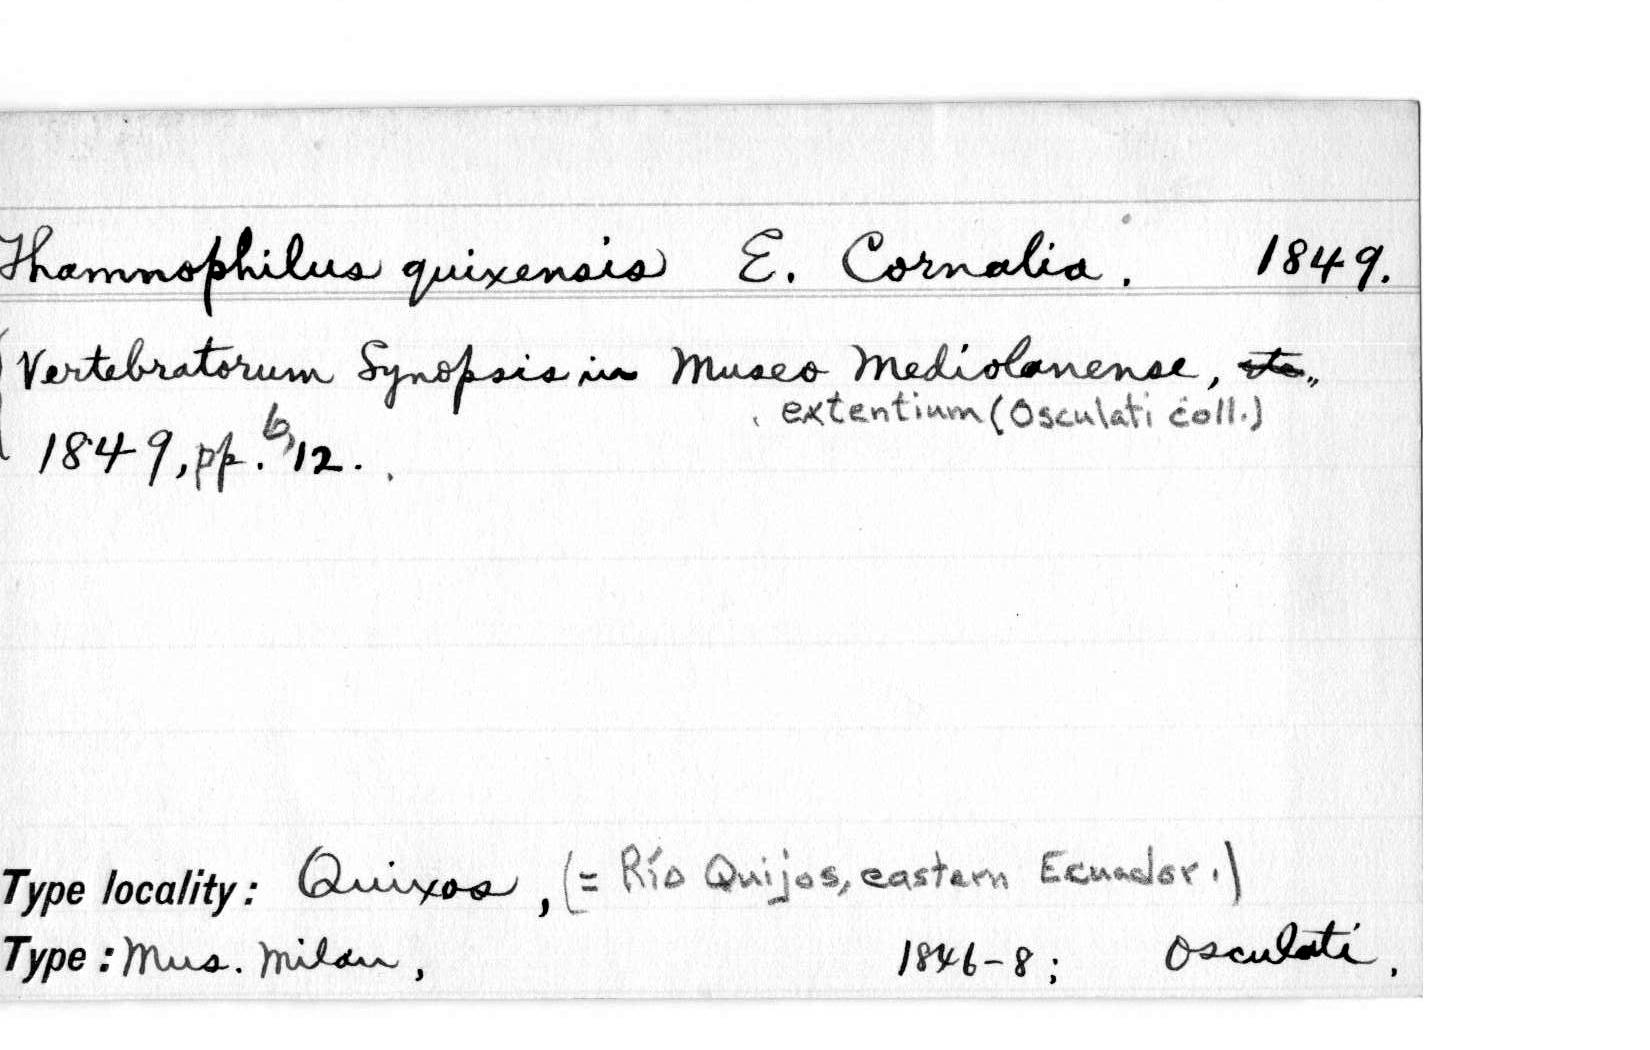 Thamnophilus quixensis E. Cornalia. 1849.
(Vertebratorum Synopsis in Museo Mediolanense, etc.,
extentium (Osculati coll.)
1849, pp. 6, 12.
Type locality: Quixos, (= Río Quijos, eastern Ecuador.)
Type: Mus. Milan, 1846-8; Osculati.